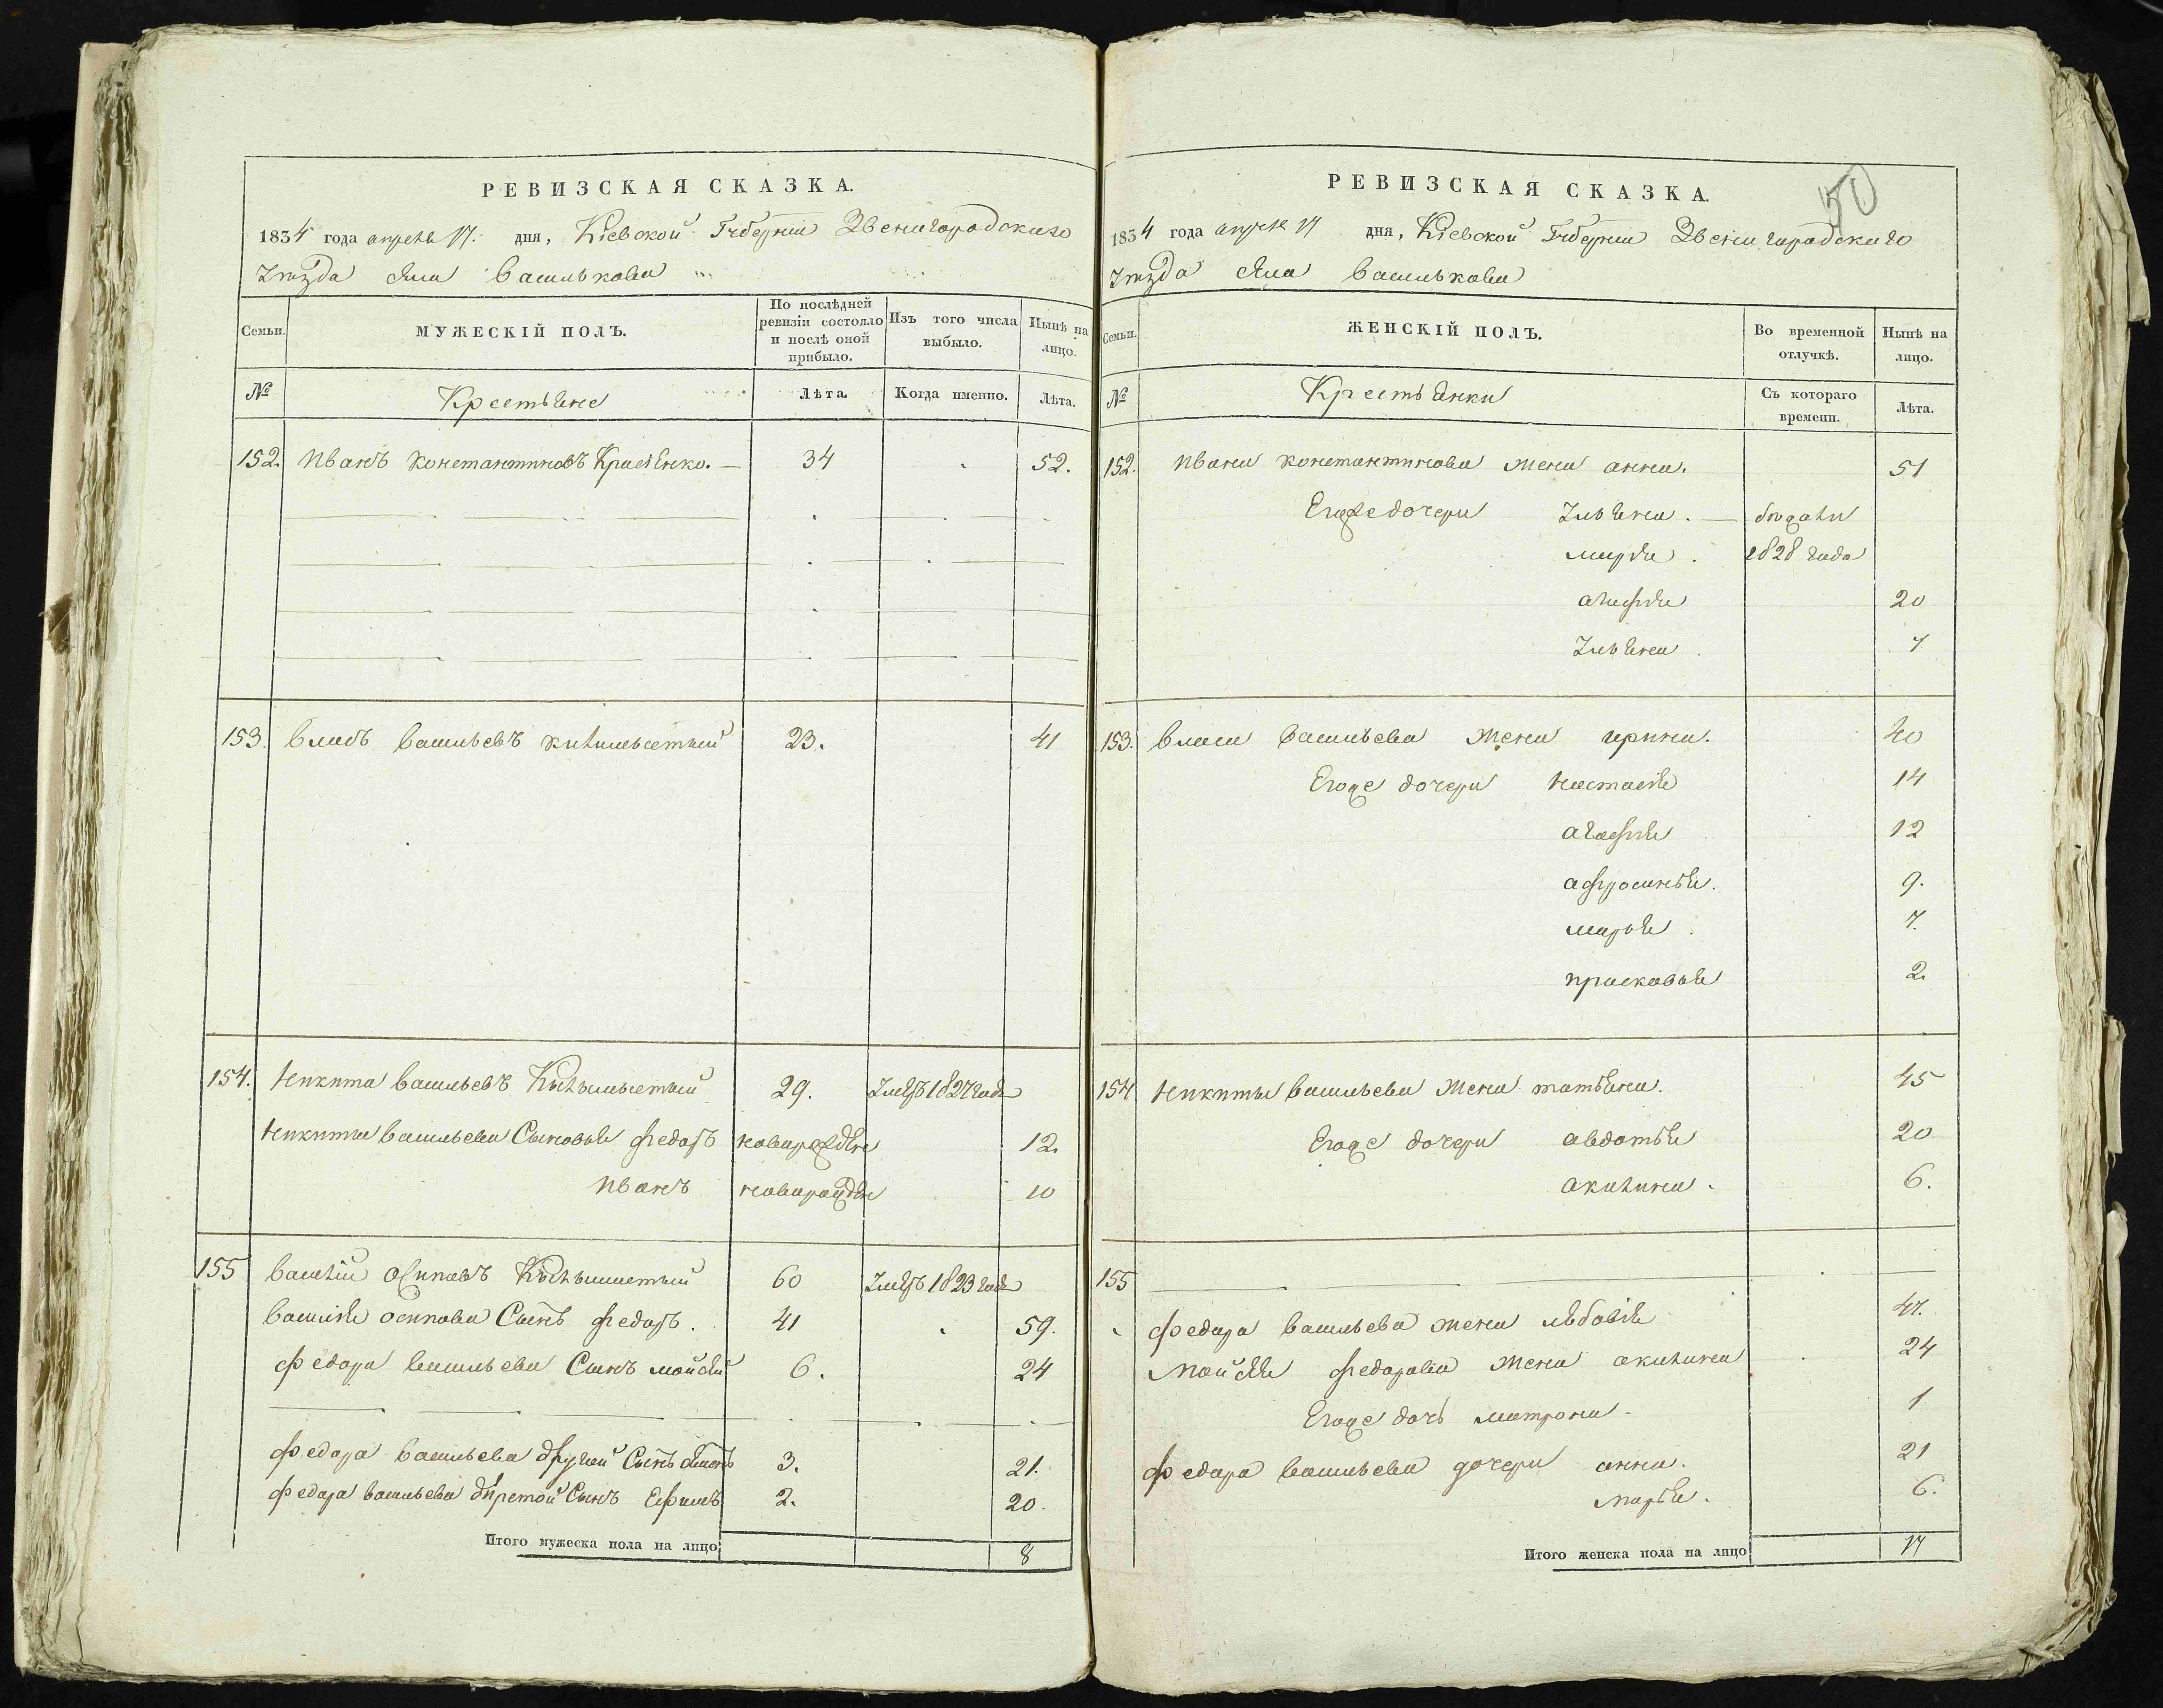 РЕВИЗСКАЯ СКАЗКА.
1834 года апреля 17. дня, Кіевской Губерніи Звенигородскаго
уезда села Василькова
Семьи. МУЖЕСКІЙ ПОЛЪ. По послѣдней ревизіи состояло и послѣ оной прибыло. Изъ того числа выбыло. Нынѣ на лицо.
№ Крестьяне Лѣта. Когда именно. Лѣта.
152. Иванъ Константиновъ 34 52.
153. Власъ Васильевъ 23. 41
154. Никита Васильевъ 29. умеръ 1827 года
Никиты Васильева Сыновья Федоръ новорожденъ 12.
Иванъ новорожденъ 10
155 Василій Осиповъ 60 умеръ 1823 года
Василія Осипова Сынъ Федоръ. 41 59.
Федора Васильева Сынъ Мойсей 6. 24
Федора Васильева другой Сынъ 3. 21.
Федора Васильева третой Сынъ Ефимъ 2. 20.
Итого мужеска пола на лицо 8
50
РЕВИЗСКАЯ СКАЗКА.
1834 года апреля 17 дня, Кіевской Губерніи Звенигородскаго
уезда села Василькова
Семьи. ЖЕНСКІЙ ПОЛЪ. Во временной отлучкѣ. Нынѣ на лицо.
№ Крестьянки Съ котораго времени. Лѣта.
152. Ивана Константинова жена анна. 51
Егоже дочери Ульяна.
марья. 1828 года
агафія 20
Ульяна 7
153. Власа Васильева жена ирина. 40
Егоже дочери Настасія 14
агафія 12
афросинья. 9.
марья. 7.
прасковья 2.
154 Никиты Васильева жена татьяна. 45
Егоже дочери авдотья 20
акилина. 6.
155
Федора Васильева жена 47.
Мойсея Федорова жена акилина 24
Егоже дочь матрона. 1
Федора Васильева дочери анна. 21
Марья. 6.
Итого женска пола на лицо 17